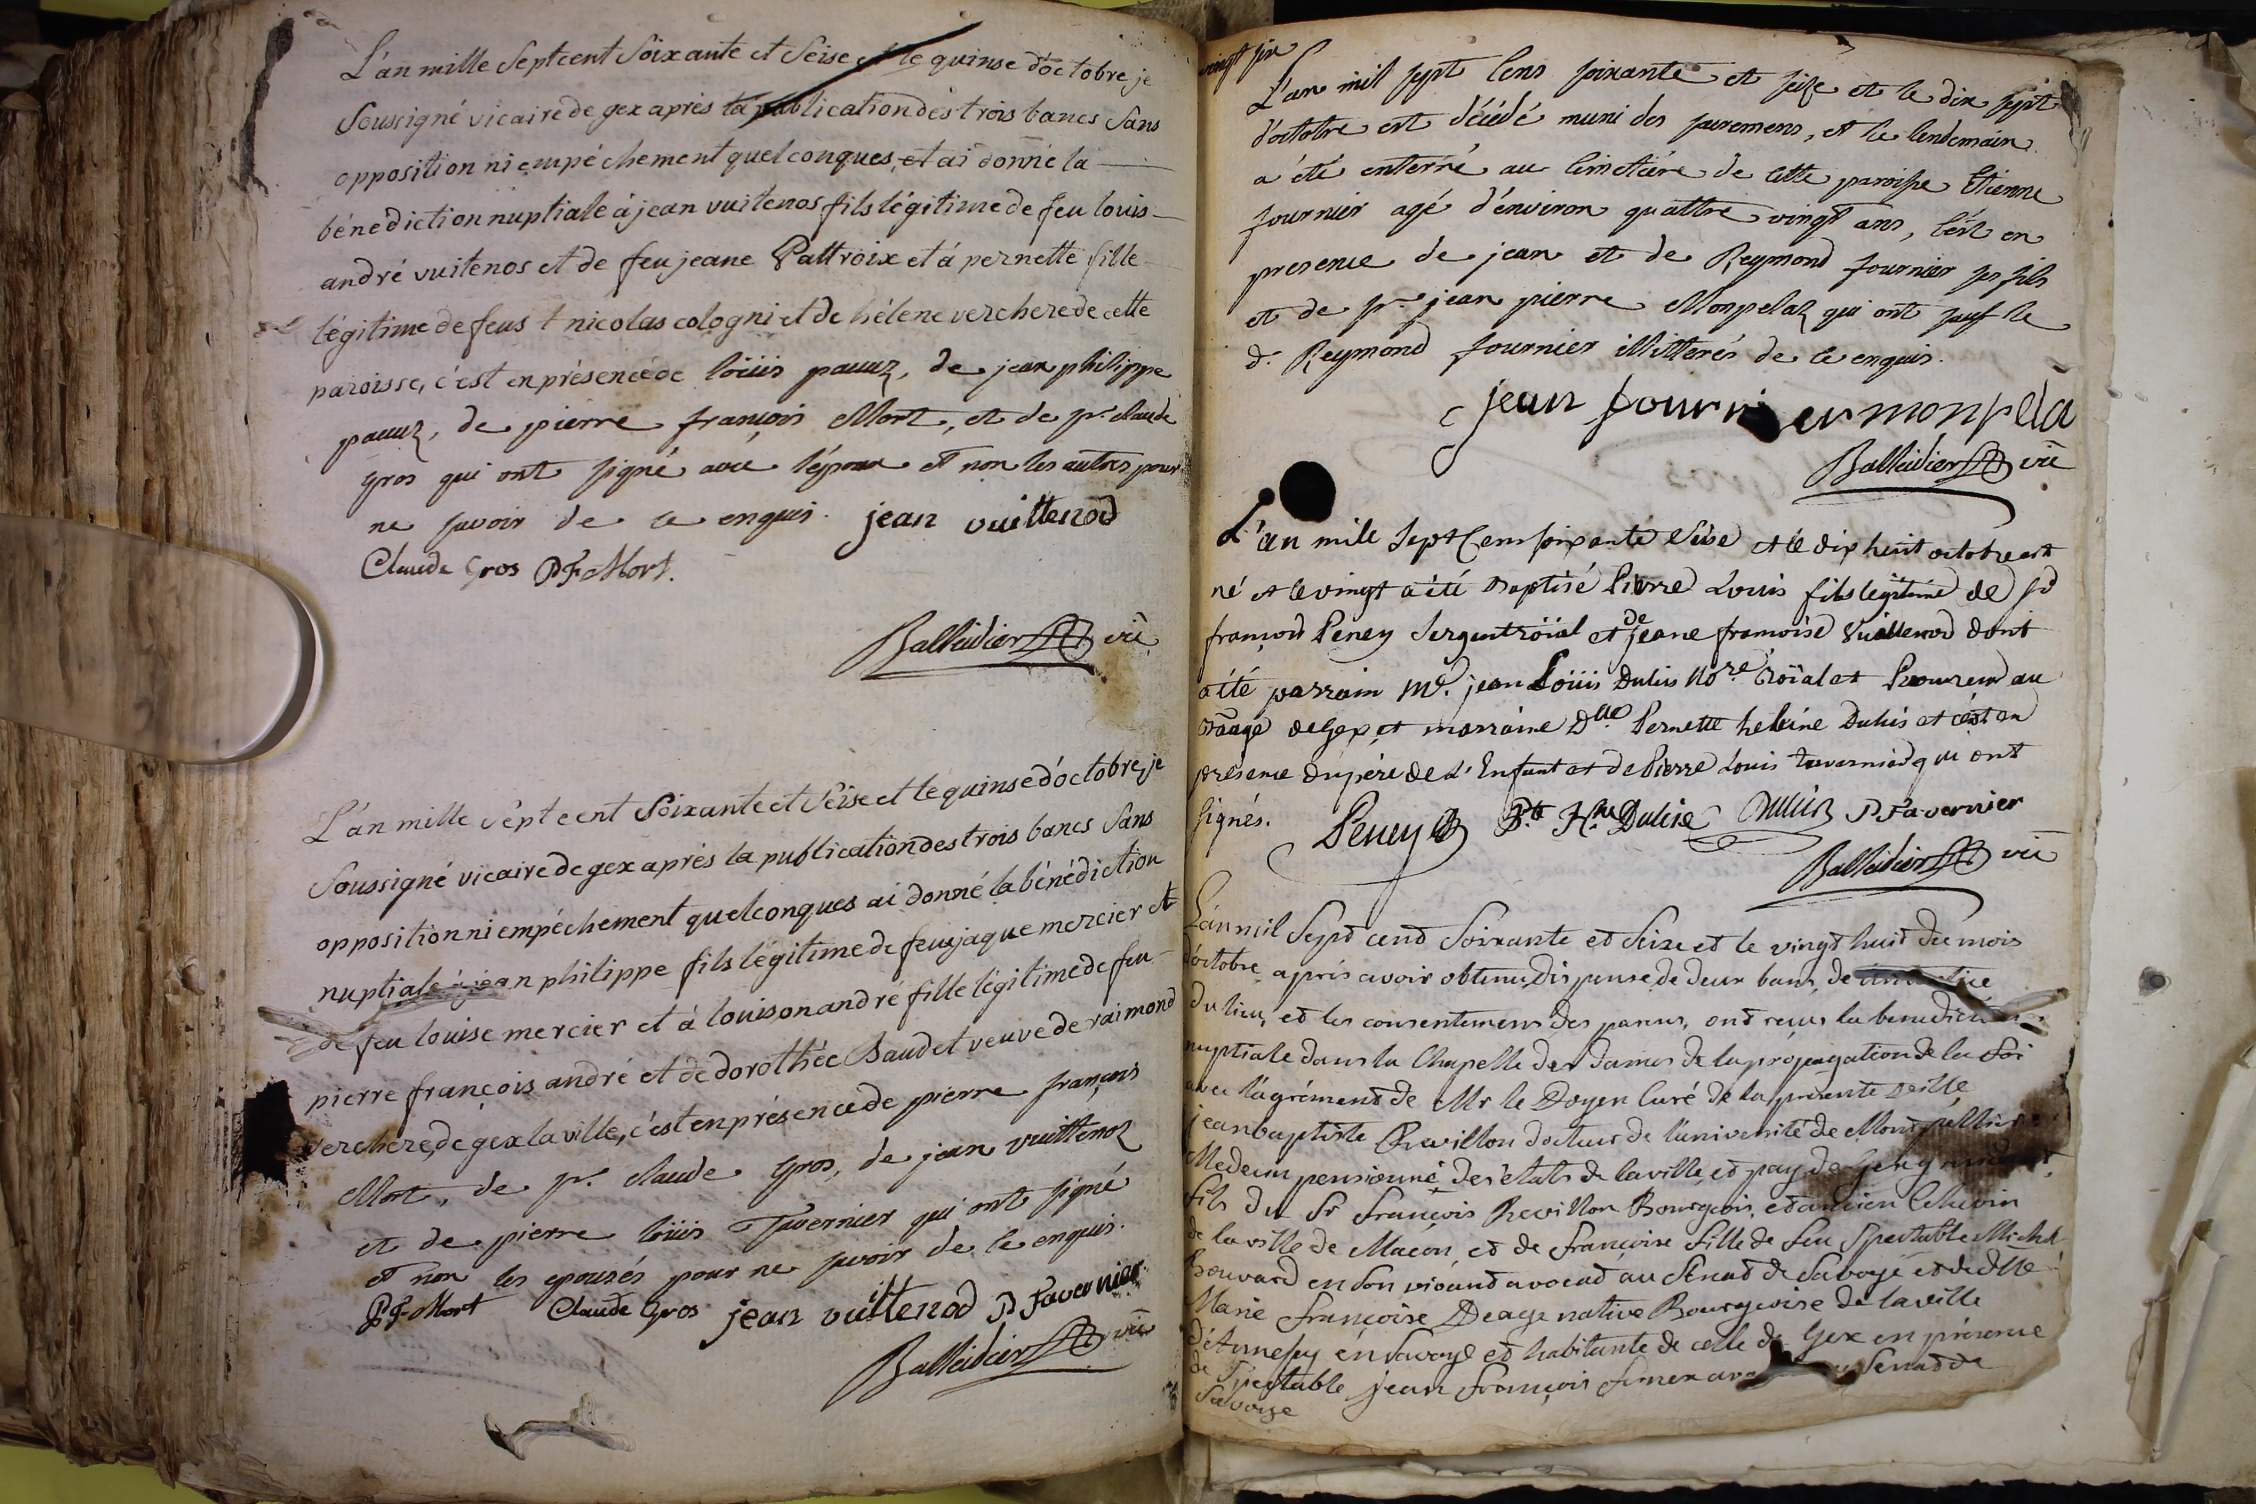 L'an mille Septcent Soixante et Seise et le quinse d'octobre je
Soussigné vicaire de gex après la publication des trois bancs Sans
opposition ni empéchement quelconques, et ai donné la
bénédiction nuptiale à jean vuitenos fils légitime de feu louis
andré vuitenos et de feu jeane Pattroix et à pernette fille
légitime de feus nicolas cologni et de hélene verchere de cette
paroisse, c'est en présence de loüis pauuz, de jean philippe
pauuz, de pierre françois Mort, et de pr claude
gros qui ont signé avec l'époux et non les autres pour
ne savoir de ce enquis. jean vuittenod
Claude Gros PF Mort.
Balleidier vic
L'an mille Septcent Soixante et Seise et le quinse d'octobre, je
Soussigné vicaire de gex après la publication des trois bancs Sans
opposition ni empéchement quelconques ai donné la bénédiction
nuptiale à jean philippe fils légitime de feu jaque mercier et
de feu louise mercier et à louison andré fille légitime de feu
pierre françois andré et de dorothée Baudet veuve de raimond
verchere, de gex la ville, c'est en présence de pierre françois
Mort, de pr. claude Gros, de jean vuittenoz
et de pierre loüis Tavernier qui ont signé
et non les epousés pour ne savoir de ce enquis.
PF Mort Claude Gros jean vuittenod P Tavernier
Balleidier vic
vingt six
L'an mil sept cens soixante et seise et le dix sept
d'octobre est décédé muni des sacremens, et le lendemain
a été enterré au cimetière de cette paroisse Etienne
fournier agé d'environ quattre vingt ans, c'est en
presence de jean et de Reymond fournier ses fils
et de sr. jean pierre Monpelaz qui ont sauf le
d. Reymond fournier illitterés de ce enquis.
jean fournier monpela
Balleidier vic
L'an mille Sept Cens soixante Seise et le dix huit octobre est
né et le vingt a été Baptisé Pierre Louis fils legitime de sr
françois Peney Sergent roïal et de jeane françoise Vuillenod dont
a été parrain Me. jean Loüis Dulis Nore. roïal et Procureur au
Bāāge de Gex et marraine Dlle Pernette heleine Dulis et c'est en
présence du père de L'Enfant et de Pierre Louis tavernier qui ont
signés. Peney Pte Hne Dulise Dulis P Tavernier
Balleidier vic
L'an mil Sept cent Soixante et Seize et le vingt huit du mois
d'octobre après avoir obtenu dispense de deux bans, de
du lieu, et les consentemens des parens, ont reçus la benediction
nuptiale dans la Chapelle des dames de la propagation de la foi
avec l'agrément de Mr le Doyen Curé de la présente ville
jean baptiste Revillon docteur de l'université de Montpellier
Medecin pensionné des états de la ville et pay de Gex
fils du Sr François Revillon Bourgeois, et ancien Echevin
de la ville de Macon, et de françoise fille de feu Spectable Michel
Bouvard en son vivant avocat au Senat de Savoye et de dlle
Marie Françoise Deage native Bourgeoise de la ville
d'Annesy en Savoye et habitante de celle de Gex en présence
de Spectable jean François Senat de
Savoye